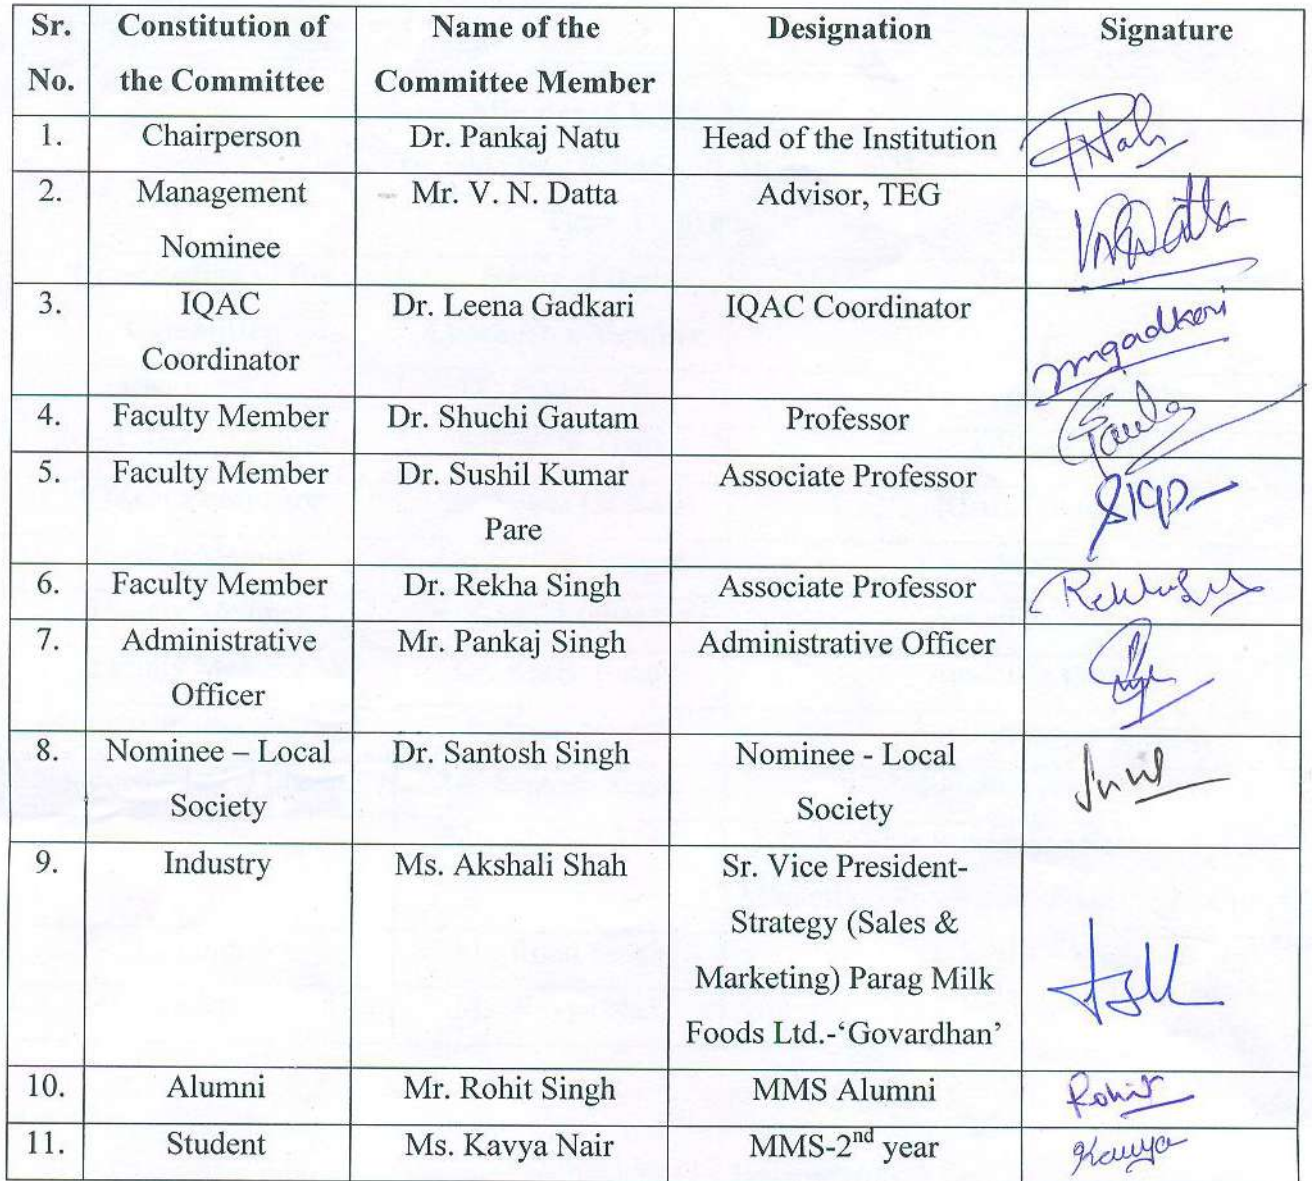 Sr. No. Constitution of the Committee Name of the Committee Member Designation Signature
1. Chairperson Dr. Pankaj Natu Head of the Institution
2. Management Nominee Mr. V. N. Datta Advisor, TEG VNDatta
3. IQAC Coordinator Dr. Leena Gadkari IQAC Coordinator
4. Faculty Member Dr. Shuchi Gautam Professor
5. Faculty Member Dr. Sushil Kumar Pare Associate Professor
6. Faculty Member Dr. Rekha Singh Associate Professor
7. Administrative Officer Mr. Pankaj Singh Administrative Officer
8. Nominee – Local Society Dr. Santosh Singh Nominee - Local Society
9. Industry Ms. Akshali Shah Sr. Vice President- Strategy (Sales & Marketing) Parag Milk Foods Ltd.-‘Govardhan’
10. Alumni Mr. Rohit Singh MMS Alumni Rohit
11. Student Ms. Kavya Nair MMS-2nd year Kavya